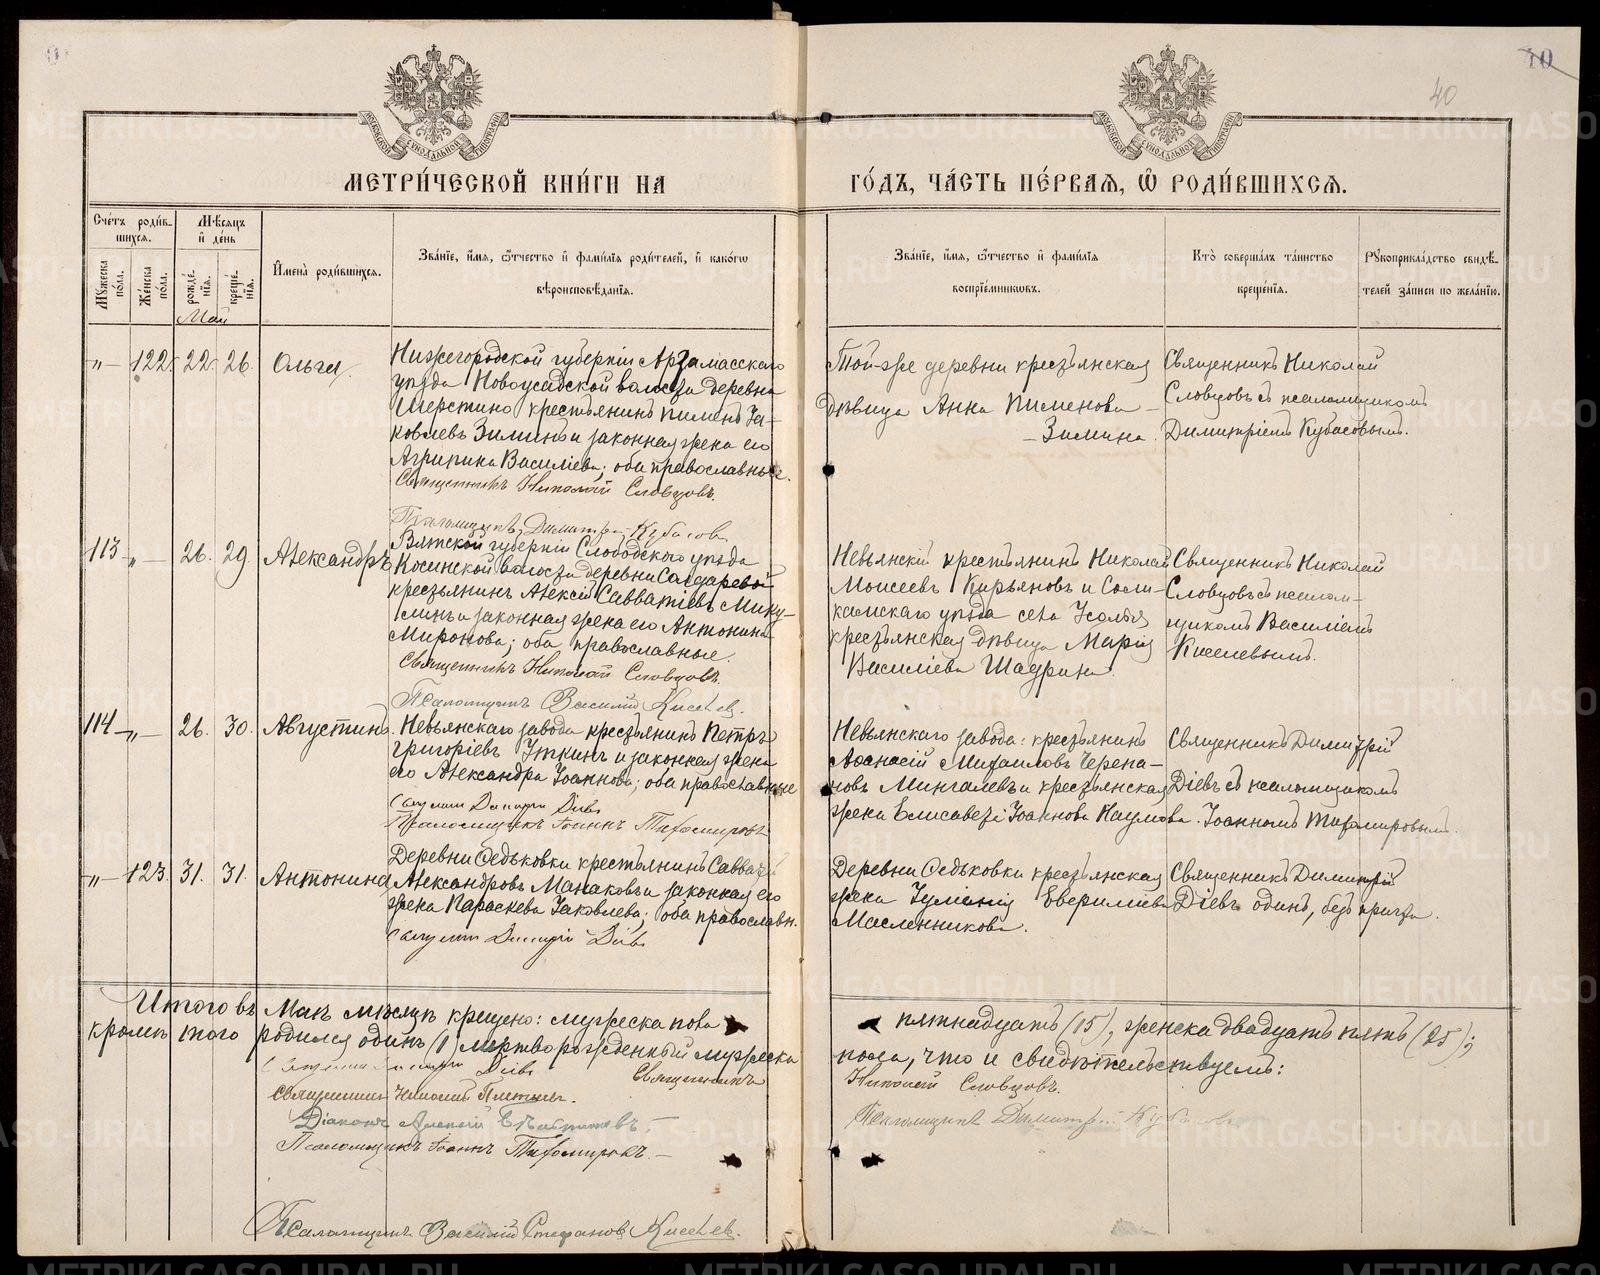 10
40
МЕТРИ́ЧЕСКОЙ КНИ́ГИ НА
ГО́ДЪ, ЧА́СТЬ ПЕ́РВАЯ, Ѽ РОДИ́ВШИХСЯ.
Сче́тъ роди́в-
шихся.
Мѣ́сяцъ
и҆ де́нь
Мꙋ́жеска по́ла.
Же́нска по́ла.
рожде́нїя.
креще́нїя.
И҆мена̀ роди́вшихся.
Зва́нїе, и҆́мя, ѻ҆́тчество и҆ фами́лїя роди́телей, и҆ како́гѡ
вѣроисповѣ́данїя.
Зва́нїе, и҆́мя, ѻ҆́тчество и҆ фами́лїя
воспрїе́мникѡвъ.
Кто̀ соверша́лъ та́инство
креще́нїя.
Рꙋкоприкла́дство свидѣ́-
телей за́писи по жела́нїю.
Май
"— 122. 22. 26. Ольга
Нижегородской губерніи Арзамасскаго
уѣзда Новоусадской волости деревни
Шерстино крестьянинъ Пименъ Іа-
ковлевъ Зиминъ и законная жена его
Агрипина Василіева; оба православные.
Священникъ Николай Словцовъ.
Псаломщикъ Димитрій Кубасовъ
Той-же деревни крестьянская
дѣвица Анна Пименова
Зимина.
Священникъ Николай
Словцовъ съ псаломщикомъ
Димитріемъ Кубасовымъ.
113 „— 26. 29 Александръ
Вятской губерніи Слободского уѣзда
Косинской волости деревни Сандаревой
крестьянинъ Алексій Савватіевъ Мику-
линъ и законная жена его Антонина
Миронова; оба православные.
Священникъ Николай Словцовъ.
Псаломщикъ Василій Киселевъ.
Невьянскій крестьянинъ Николай
Моисеевъ Кирьяновъ и Соли-
камскаго уѣзда села Усолья
крестьянская дѣвица Марія
Василіева Шаурина.
Священникъ Николай
Словцовъ съ псалом-
щикомъ Василіемъ
Киселевымъ.
114 —„— 26. 30. Августинъ
Невьянскаго завода крестьянинъ Петръ
Григоріевъ Уткинъ и законная жена
его Александра Іоаннова; оба православные
Священ. Димитрій Діевъ
Псаломщикъ Іоаннъ Тихомировъ
Невьянскаго завода: крестьянинъ
Аѳанасій Михаиловъ Черепа-
новъ Мингалевъ и крестьянская
жена Елисавета Іоаннова Наумова.
Священникъ Димитрій
Діевъ съ псаломщикомъ
Іоанномъ Тихомировымъ.
„— 123. 31. 31. Антонина
Деревни Ѳедьковки крестьянинъ Савватій
Александровъ Манаковъ и законная его
жена Параскева Іаковлева; оба православн.
Священ. Димитрій Діевъ
Деревни Ѳедьковки крестьянская
жена Іуліанія Еверилиева
Масленникова.
Священникъ Димитрій
Діевъ одинъ, безъ причта.
Итого въ Маѣ мѣсяцѣ крещено: мужеска пола
пятнадцать (15), женска двадцать пять (25);
кромѣ того родился одинъ (1) мертворожденный мужеска
пола, что и свидѣтельствуемъ:
Священникъ Димитрій Діевъ
Священникъ Николай Словцовъ.
Священникъ Николай
Діаконъ Алексій
Псаломщикъ Димитрій Кубасовъ
Псаломщикъ Іоаннъ Тихомировъ.—
Псаломщикъ Василій Стефановъ Киселевъ.
METRIKI.GASO-URAL.RU